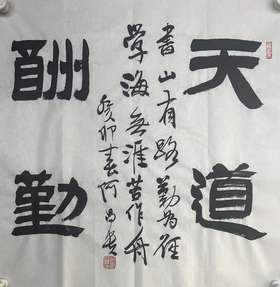 天道
酬勤
書山有路勤為徑
學海無涯苦作舟
癸卯春阿昌